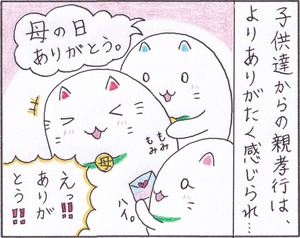 子供達からの親孝行は、
よりありがたく感じられ…
母の日
ありがとう。
もみ
もみ
母
ハイ。
えっ!!
ありが
とう!!